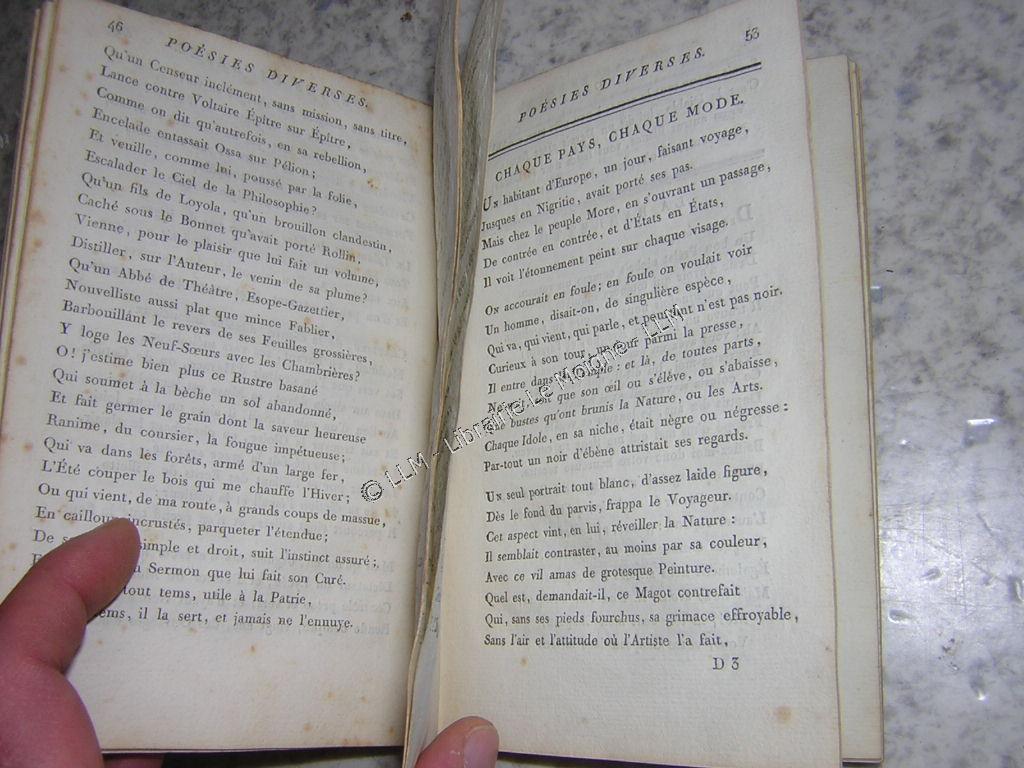 46
POÉSIES DIVERSES.
Qu'un Censeur inclément, sans mission, sans titre,
Lance contre Voltaire Épître sur Épître,
Comme on dit qu'autrefois, en sa rebellion,
Encelade entassait Ossa sur Pélion;
Et veuille, comme lui, poussé par la folie,
Escalader le Ciel de la Philosophie?
Qu'un fils de Loyola, qu'un brouillon clandestin,
Caché sous le Bonnet qu'avait porté Rollin,
Vienne, pour le plaisir que lui fait un volume,
Distiller, sur l'Auteur, le venin de sa plume?
Qu'un Abbé de Théâtre, Esope-Gazettier,
Nouvelliste aussi plat que mince Fablier,
Barbouillant le revers de ses Feuilles grossières,
Y loge les Neuf-Sœurs avec les Chambrières?
O! j'estime bien plus ce Rustre basané
Qui soumet à la bèche un sol abandonné,
Et fait germer le grain dont la saveur heureuse
Ranime, du coursier, la fougue impétueuse;
Qui va dans les forêts, armé d'un large fer,
L'Été couper le bois qui me chauffe l'Hiver;
Ou qui vient, de ma route, à grands coups de massue,
En cailloux incrustés, parqueter l'étendue;
De simple et droit, suit l'instinct assuré;
Sermon que lui fait son Curé.
tout tems, utile à la Patrie,
il la sert, et jamais ne l'ennuye.
53
POÉSIES DIVERSES.
CHAQUE PAYS, CHAQUE MODE.
UN habitant d'Europe, un jour, faisant voyage,
Jusques en Nigritie, avait porté ses pas.
Mais chez le peuple More, en s'ouvrant un passage,
De contrée en contrée, et d'États en États,
Il voit l'étonnement peint sur chaque visage.
ON accourait en foule; en foule on voulait voir
Un homme, disait-on, de singulière espèce,
Qui va, qui vient, qui parle, et pourtant n'est pas noir.
Curieux à son tour, parmi la presse,
Il entre dans le Temple: et là, de toutes parts,
que son œil ou s'élève, ou s'abaisse,
bustes qu'ont brunis la Nature, ou les Arts.
Chaque Idole, en sa niche, était nègre ou négresse:
Par-tout un noir d'ébène attristait ses regards.
UN seul portrait tout blanc, d'assez laide figure,
Dès le fond du parvis, frappa le Voyageur.
Cet aspect vint, en lui, réveiller la Nature:
Il semblait contraster, au moins par sa couleur,
Avec ce vil amas de grotesque Peinture.
Quel est, demandait-il, ce Magot contrefait
Qui, sans ses pieds fourchus, sa grimace effroyable,
Sans l'air et l'attitude où l'Artiste l'a fait,
D 3
© LLM - Librairie Le Moigne - LLM